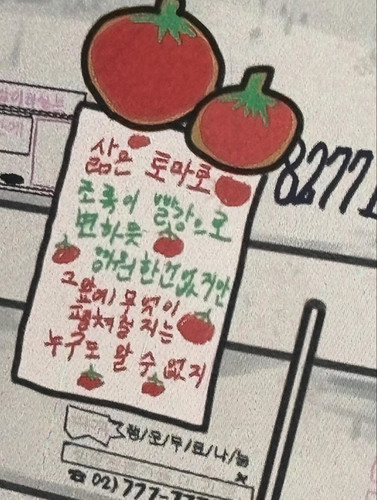 삶은 토마토
초록이 빨강으로
변하듯
영원한건없지만
그 앞에 무엇이
펼쳐질지는
누구도 알 수 없지
82771
행/운/무/료/나/눔
☎ 02)777-777